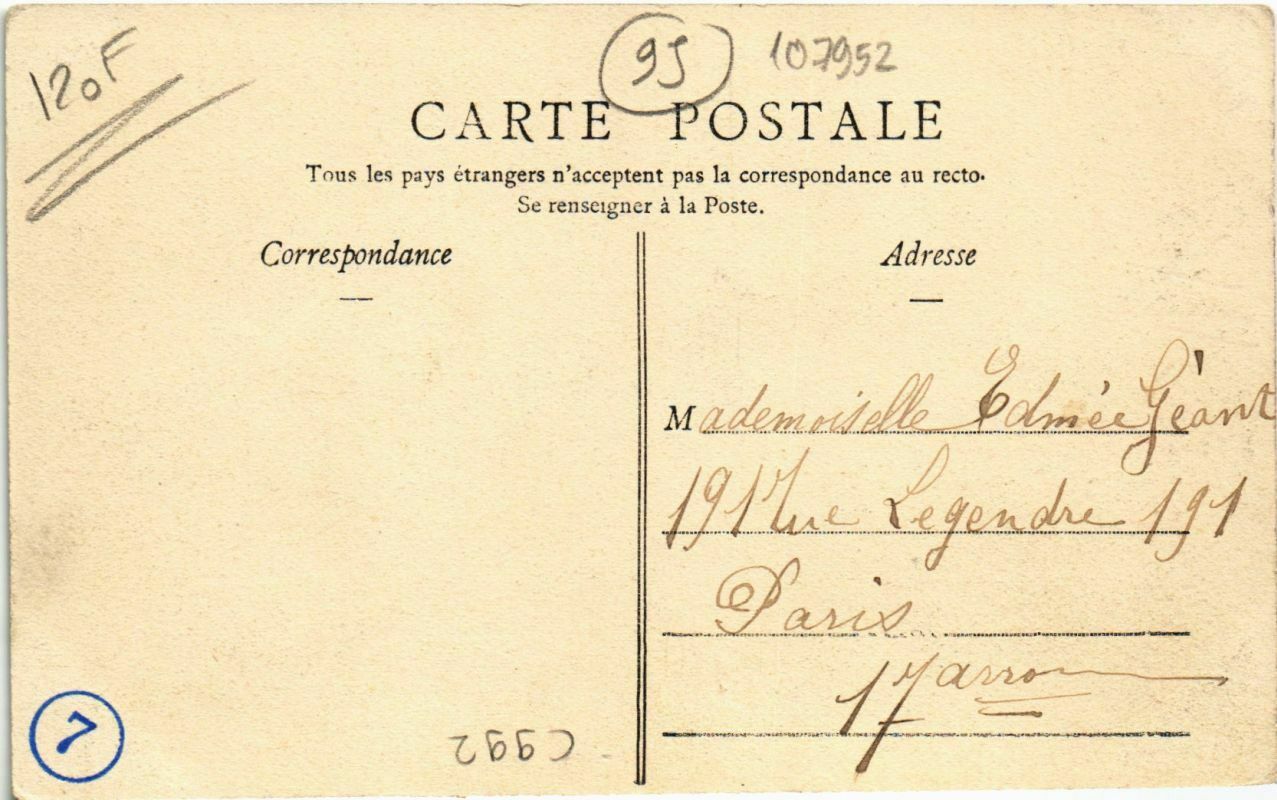 120F
95
107952
CARTE POSTALE
Tous les pays étrangers n'acceptent pas la correspondance au recto.
Se renseigner à la Poste.
Correspondance
Adresse
Mademoiselle Edmée Géant
191 rue Legendre 191
Paris
17 arron
7
C992